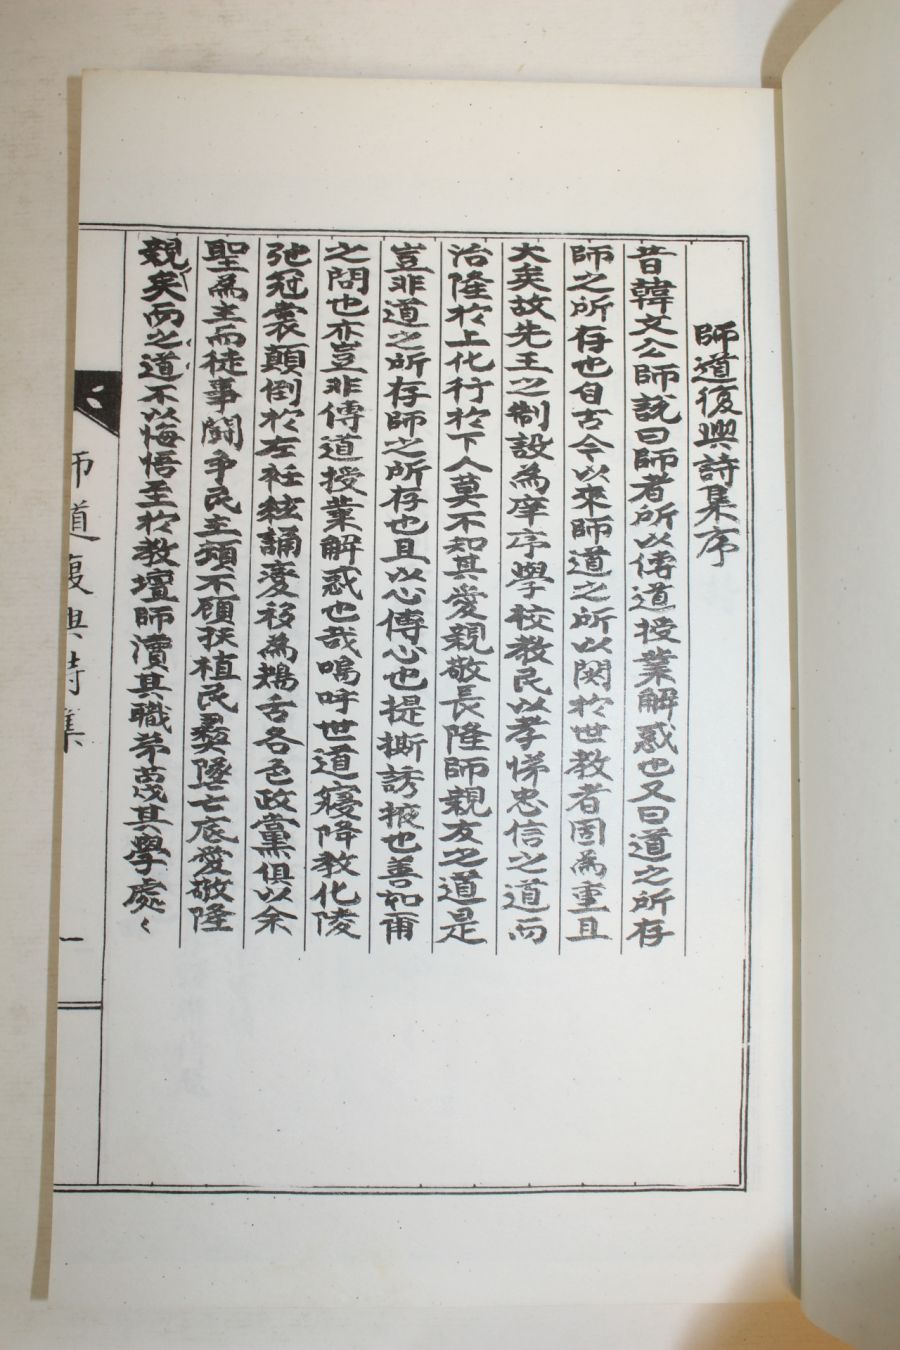 師道復興詩集序
昔韓文公師說曰師者所以傳道授業解惑也又曰道之所存
師之所存也自古今以來師道之所以関於世教者固爲重且
大矣故先王之制設爲庠序學校教民以孝悌忠信之道而
治隆於上化行於下人莫不知其愛親敬長隆師親友之道是
豈非道之所存師之所存也且以心傳心也提撕誘掖也善如甫
之問也亦豈非傳道授業解惑也哉嗚呼世道寖降教化陵
弛冠裳顛倒於左袵絃誦變移為鴂舌各色政黨俱以余
聖爲主而徒事鬪爭民主頭不顧扶植民彛墜亡底愛敬隆
親矣而之道不以悔悟至於教壇師瀆其職弟茂其學處〻
師道復興詩集
一